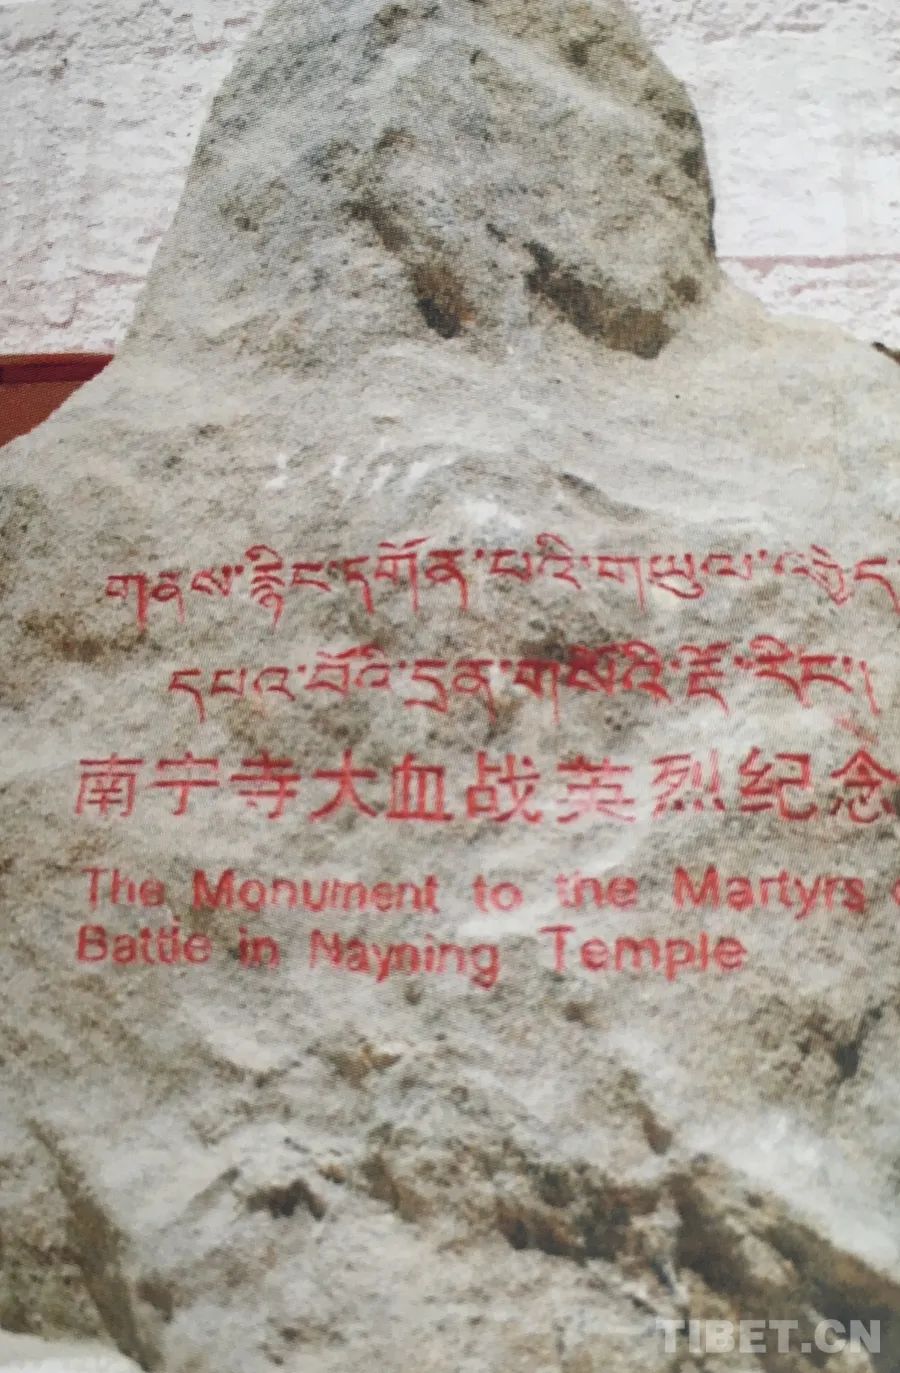 གནས་རྙིང་དགོན་པའི་གཡུལ་འགྱེད
དཔའ་བོའི་དྲན་གསོའི་རྡོ་རིང་།
南宁寺大血战英烈纪念
The Monument to the Martyrs
Battle in Nayning Temple
TIBET.CN